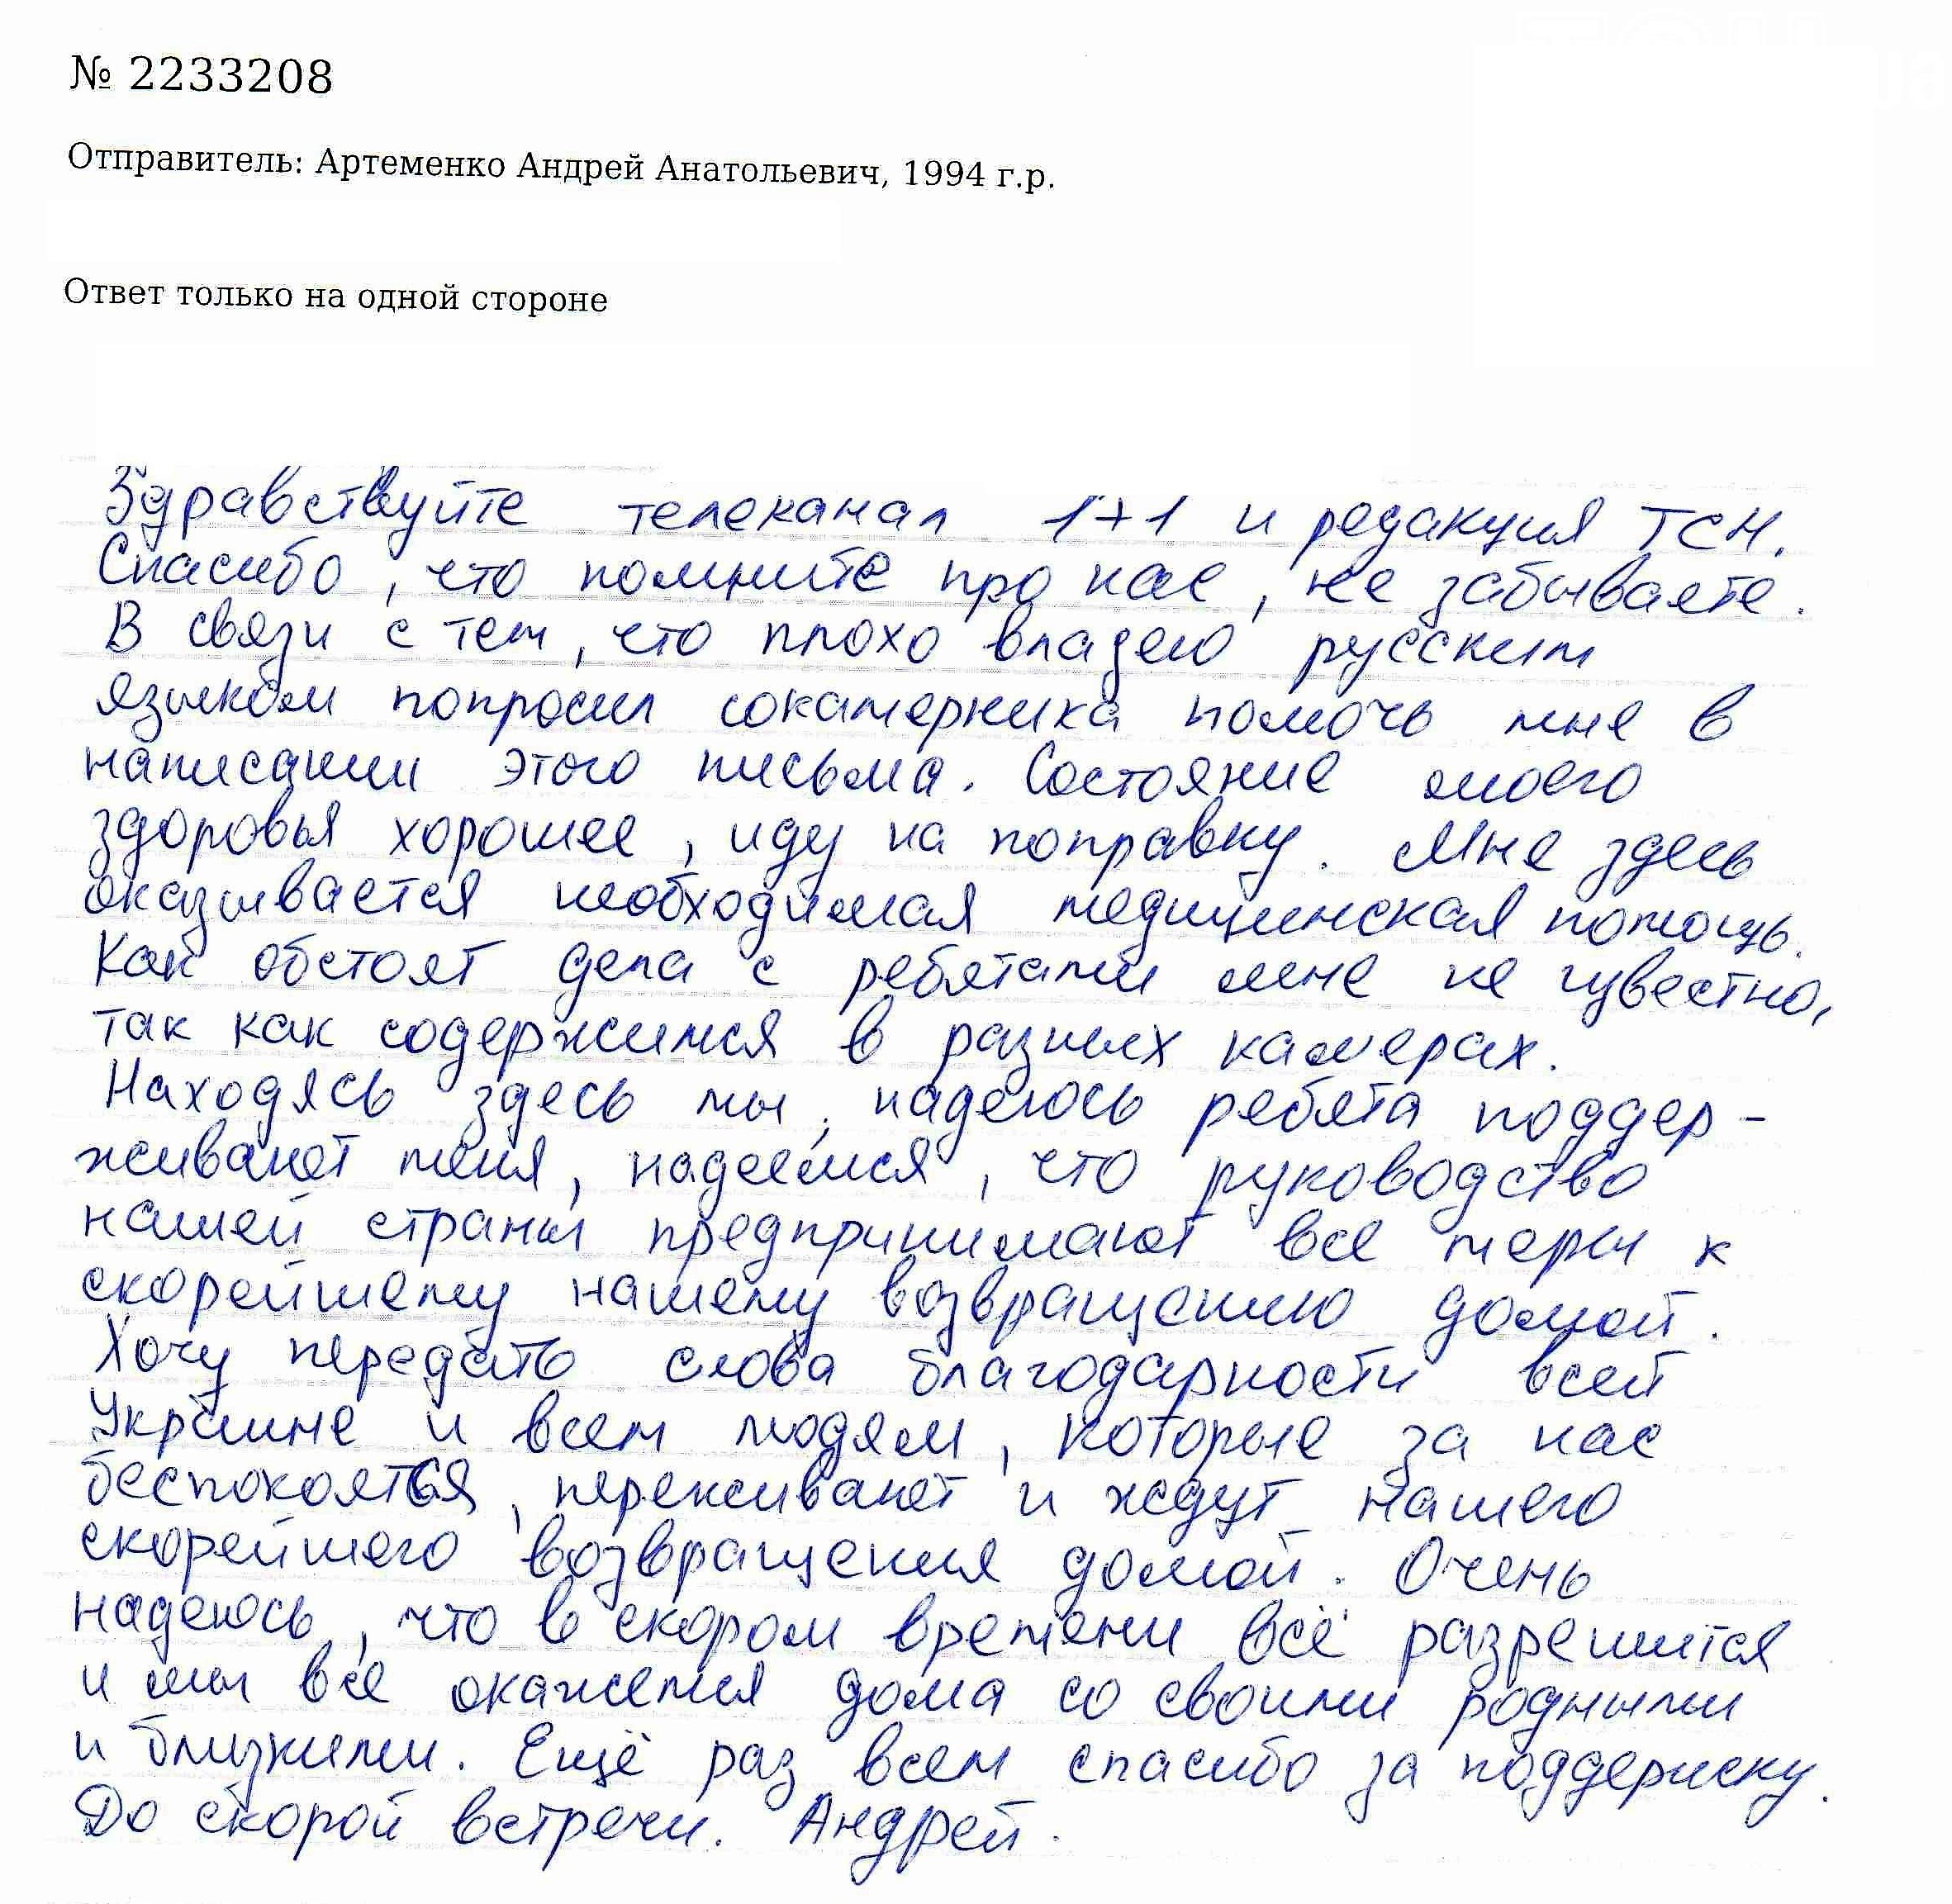 № 2233208
Отправитель: Артеменко Андрей Анатольевич, 1994 г.р.
Ответ только на одной стороне
Здравствуйте телеканал 1+1 и редакция ТСН.
Спасибо, что помните про нас, не забываете.
В связи с тем, что плохо владею русским
языком попросил сокамерника помочь мне в
написании этого письма. Состояние моего
здоровья хорошее, иду на поправку. Мне здесь
оказывается необходимая медицинская помощь.
Как обстоят дела с ребятами мне не известно,
так как содержимся в разных камерах.
Находясь здесь мы, надеюсь ребята поддер-
живают меня, надеемся, что руководство
нашей страны предпринимают все меры к
скорейшему нашему возвращению домой.
Хочу передать слова благодарности всей
Украине и всем людям, которые за нас
беспокоятся, переживают и ждут нашего
скорейшего возвращения домой. Очень
надеюсь, что в скором времени всё разрешится
и мы все окажемся дома со своими родными
и близкими. Ещё раз всем спасибо за поддержку.
До скорой встречи. Андрей.